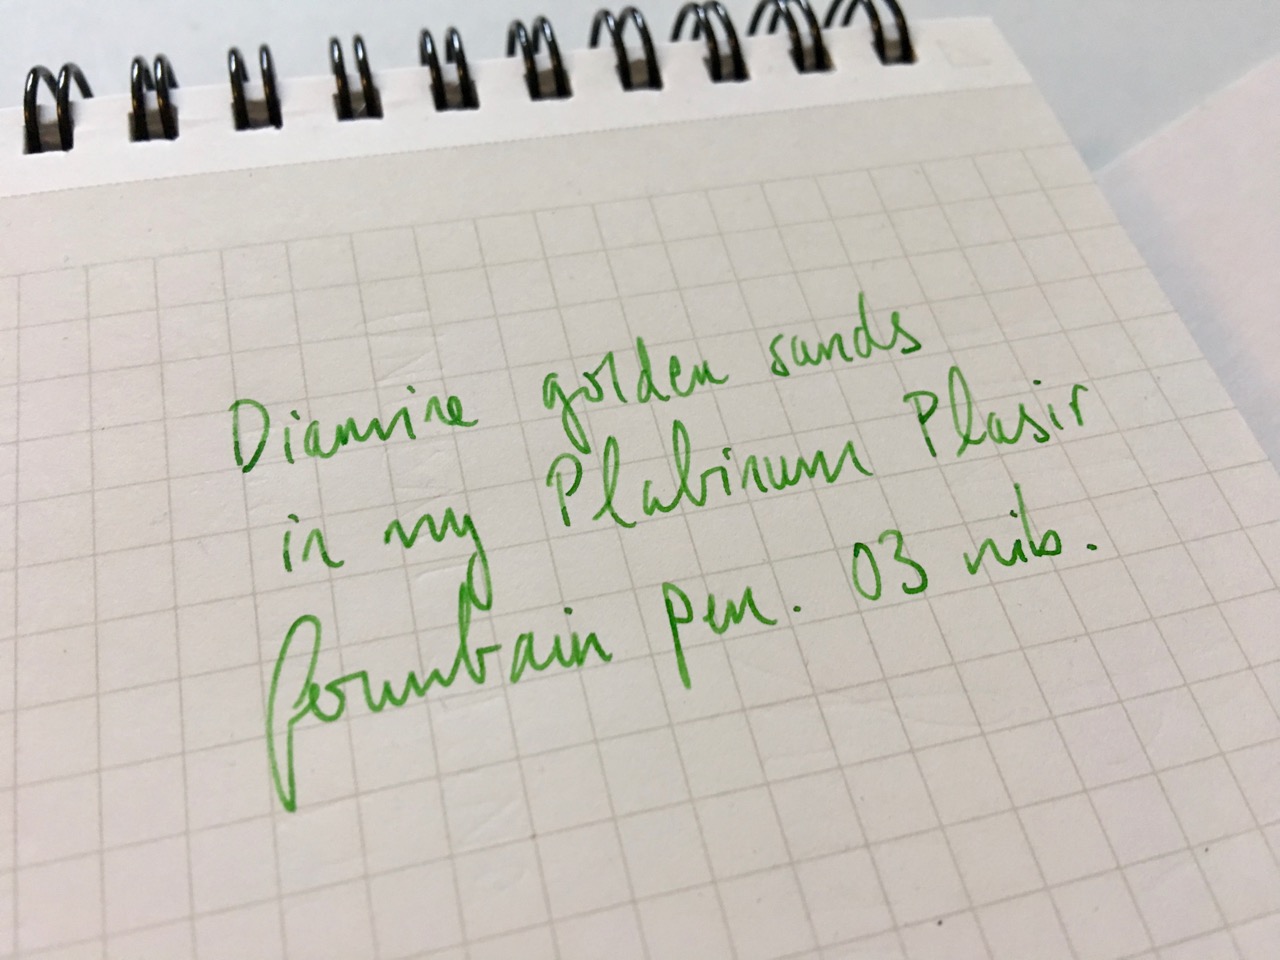 Diamine golden sands
in my Platinum Plasir
fountain pen. 03 nib.